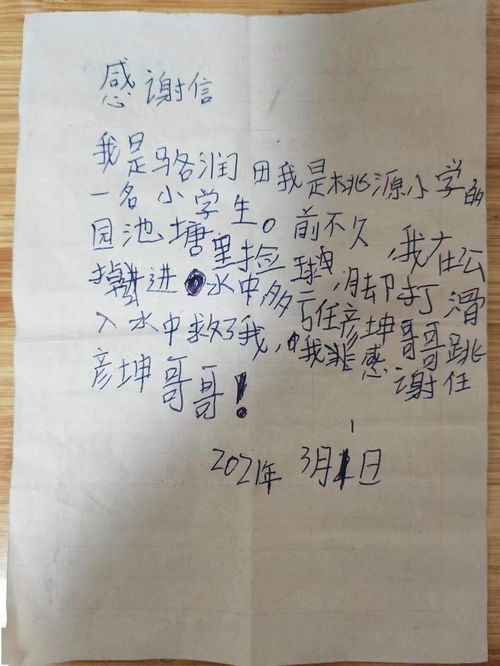 感谢信
我是骆润田我是桃源小学的
一名小学生。前不久,我在公
园池塘里捡球,却打滑
掉进水中多亏任彦坤哥哥跳
入水中救了我,我感谢任
彦坤哥哥!
2021年 3月1日